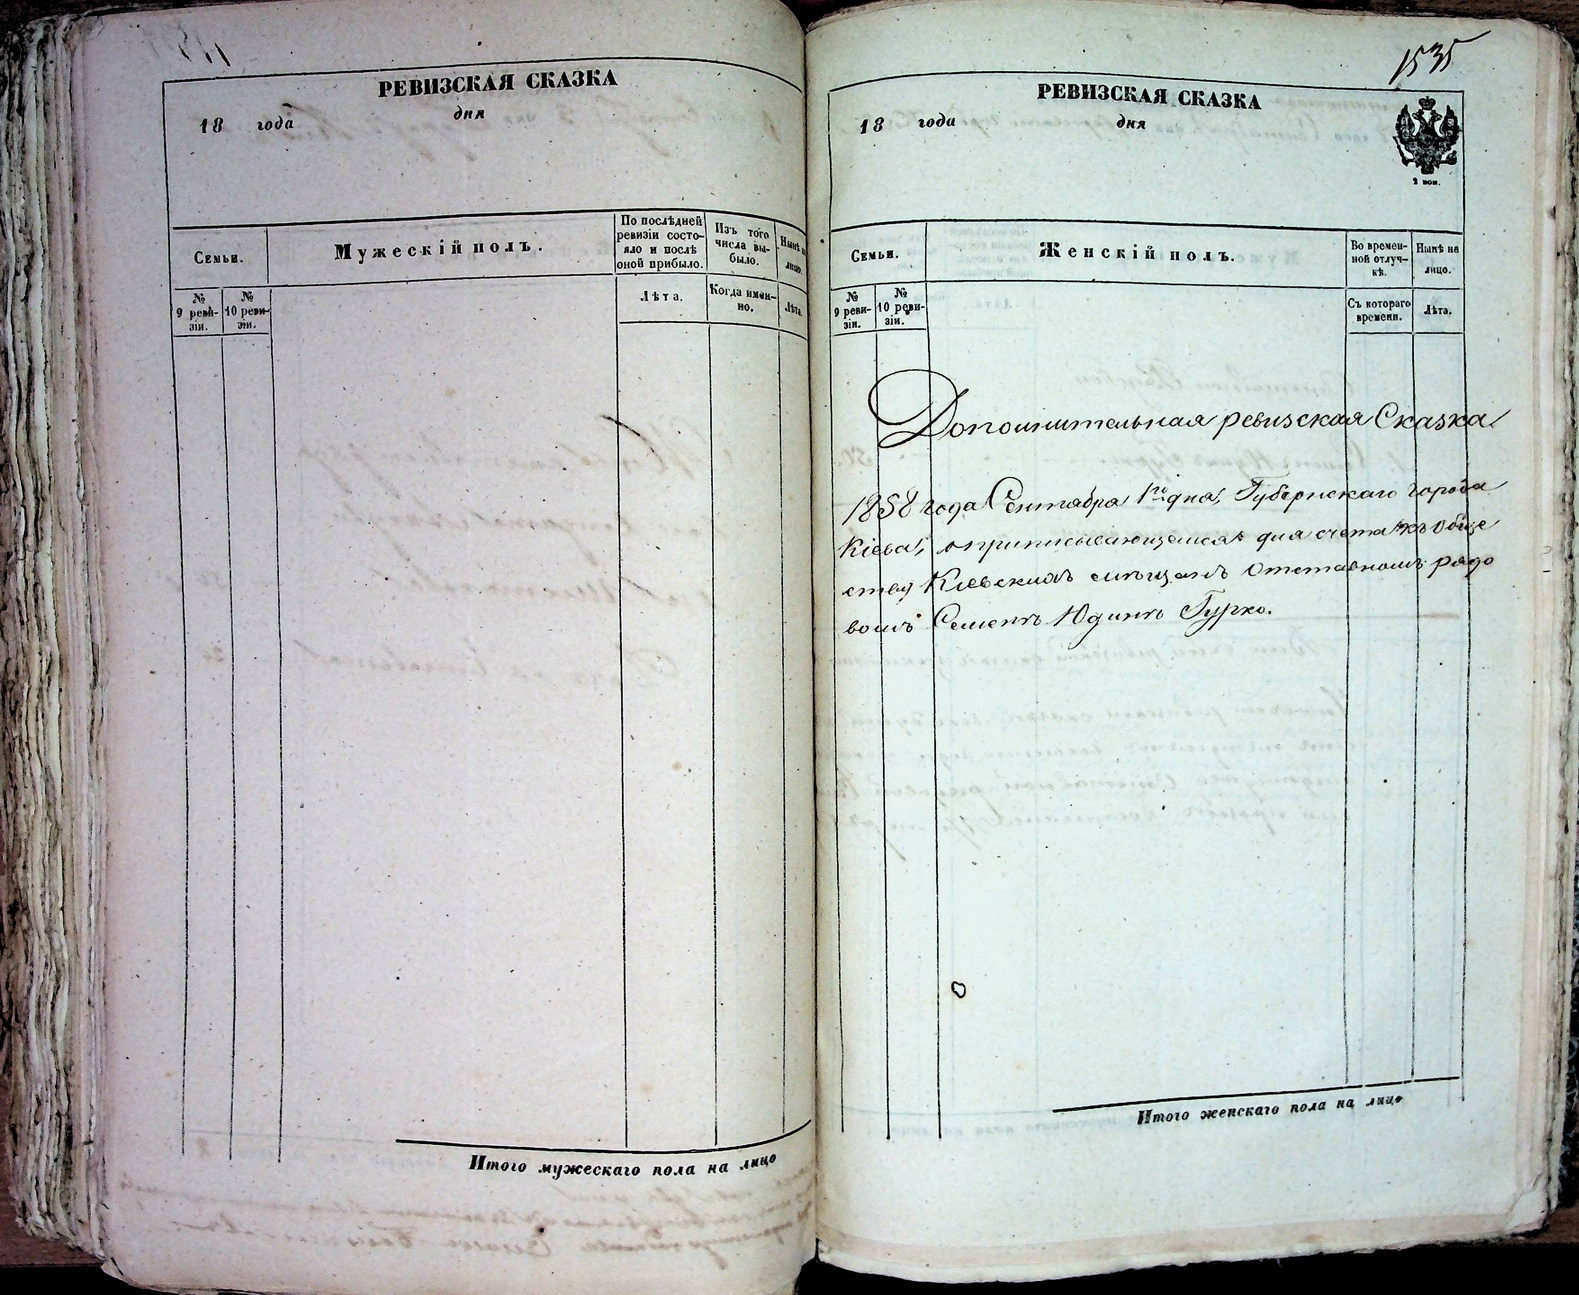 РЕВИЗСКАЯ СКАЗКА
18 года дня
Семьи.
Мужескій полъ.
По послѣдней ревизіи состояло и послѣ оной прибыло.
Изъ того числа выбыло.
Нынѣ на лицо.
№ 9 ревизіи.
№ 10 ревизіи.
Лѣта.
Когда именно.
Лѣта.
Итого мужескаго пола на лицо
1535
РЕВИЗСКАЯ СКАЗКА
18 года дня
2 коп.
Семьи.
Женскій полъ.
Во временной отлучкѣ.
Нынѣ на лицо.
№ 9 ревизіи.
№ 10 ревизіи.
Съ котораго времени.
Лѣта.
Дополнительная ревизская Сказка
1858 года Сентября 1го дня, Губернскаго города
Кіева, о приписывающемся для счета къ обще
ству Кіевскихъ мѣщанъ отставномъ рядо
вомъ Семенѣ Юдинѣ Гурко.
Итого женскаго пола на лицо